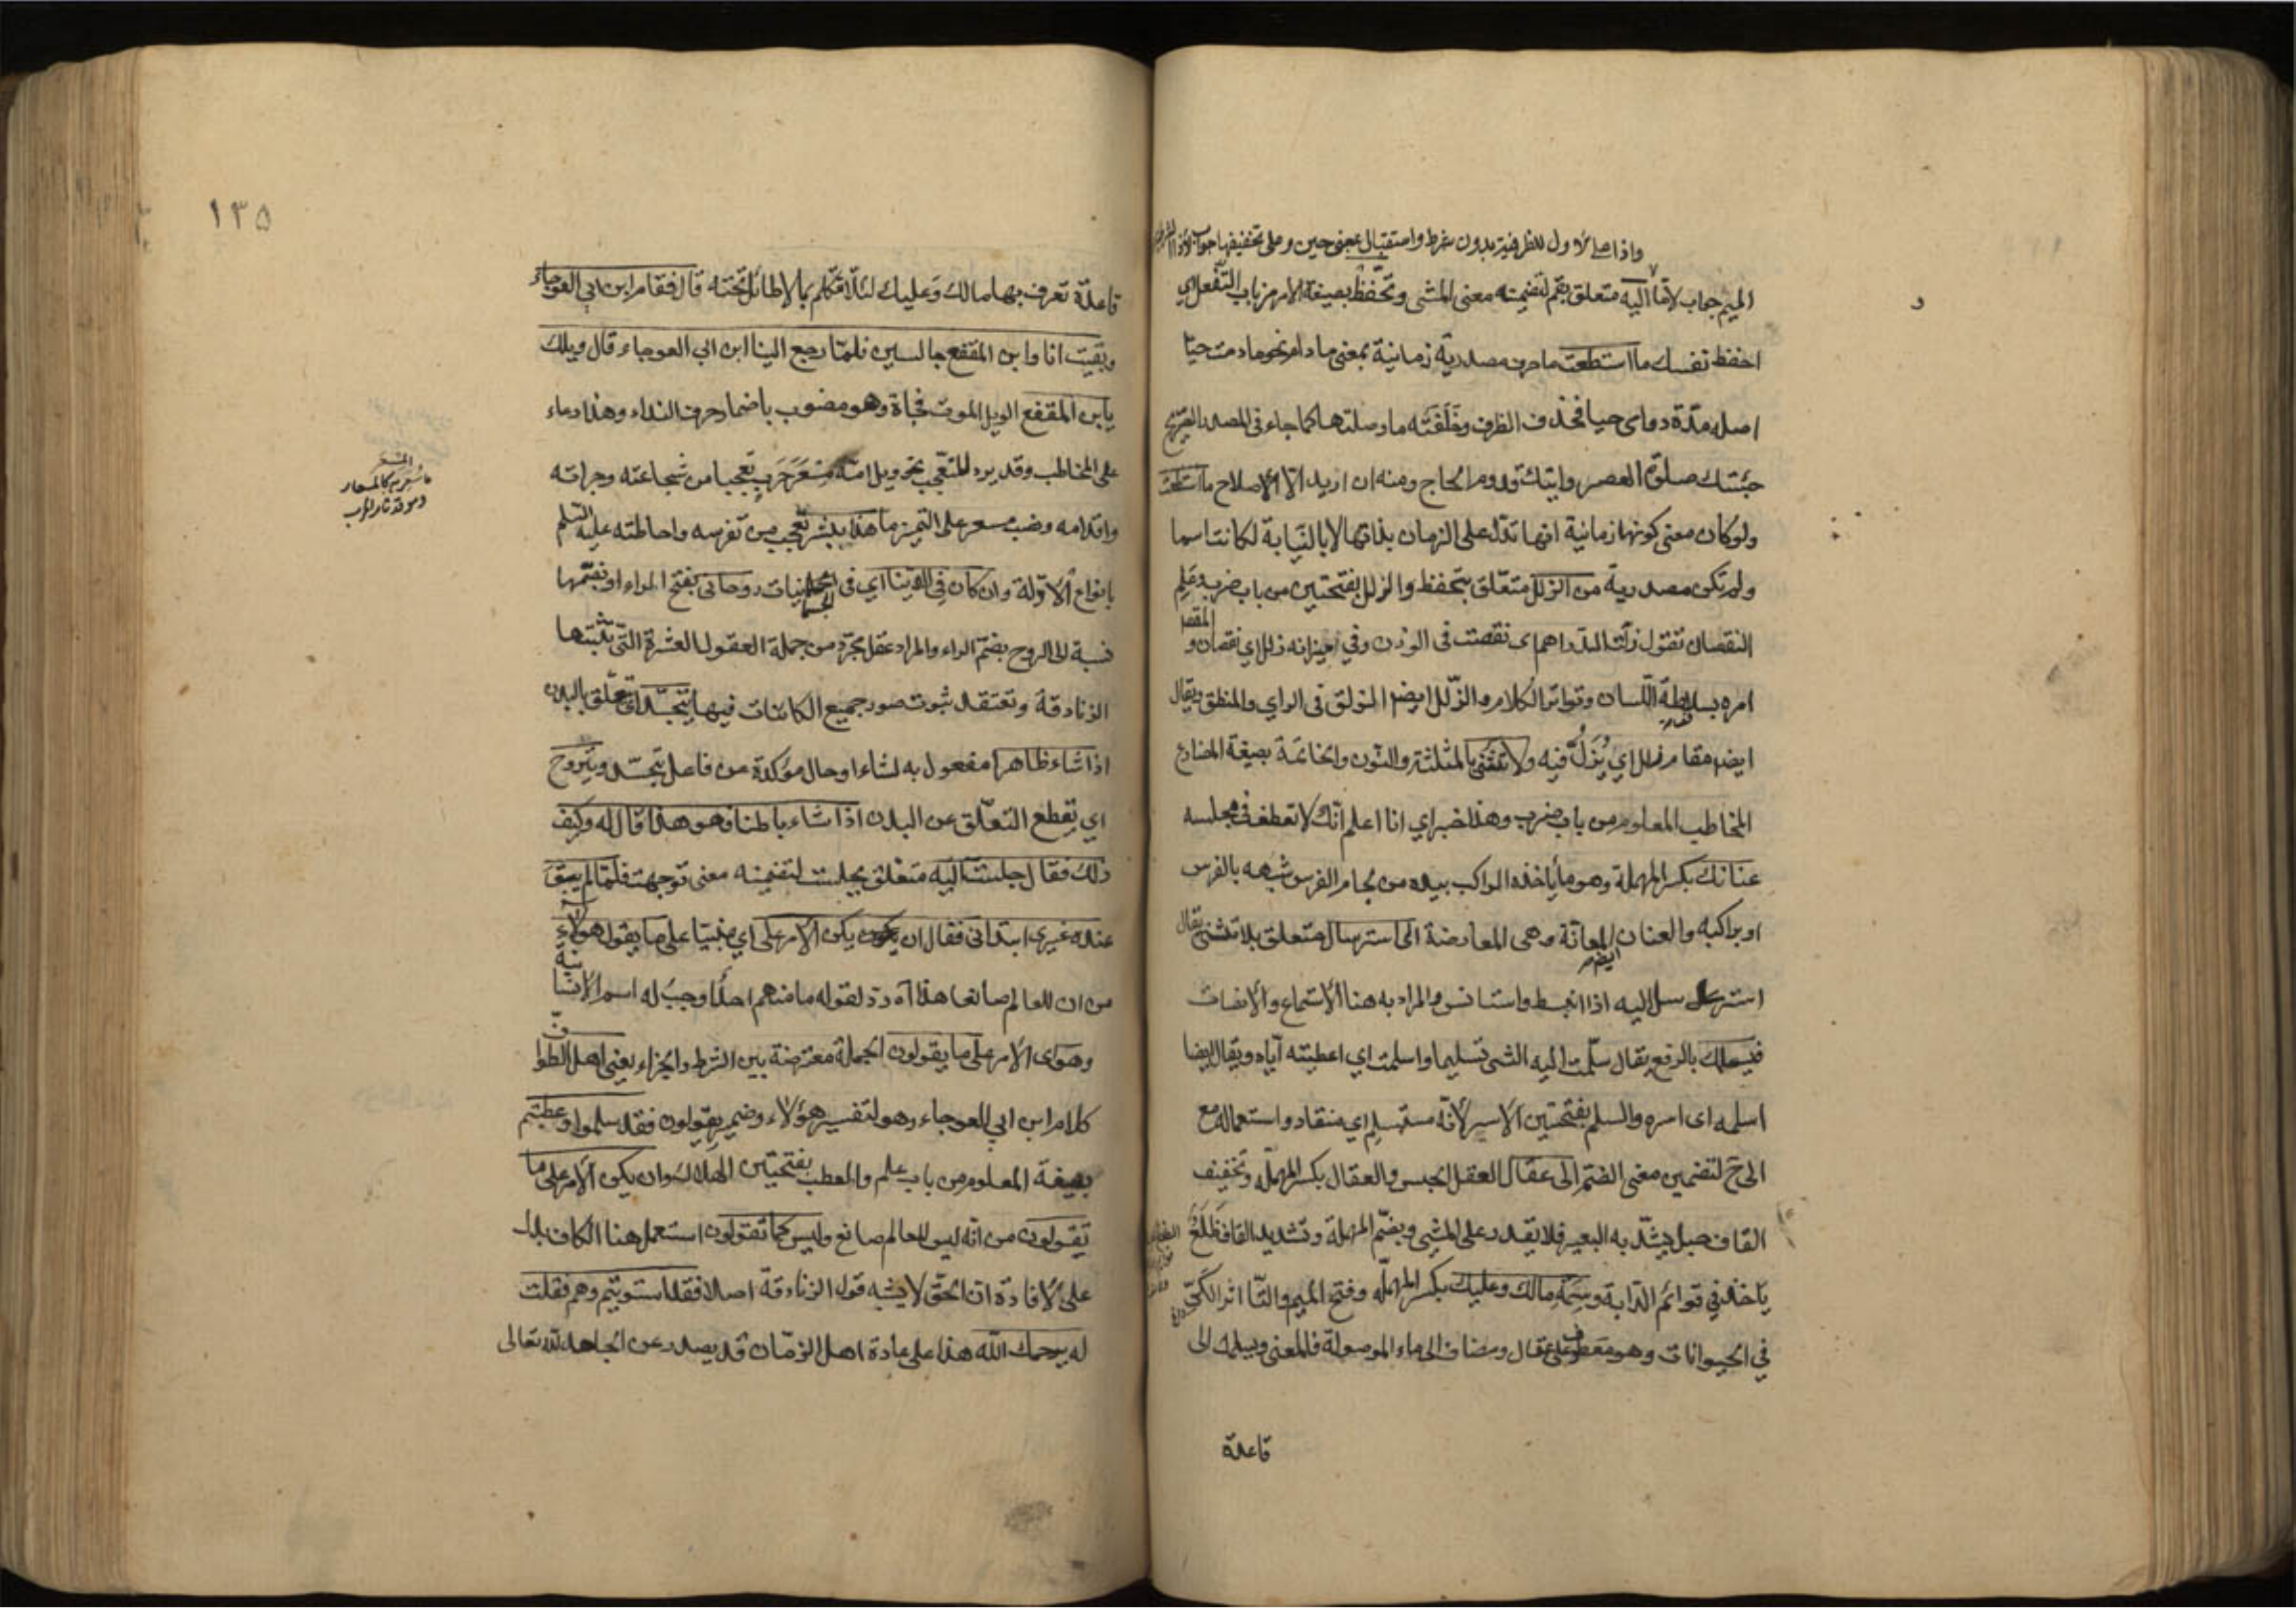 واذا على الاول للظرفية بدون شرط واستقبال بمعنى حين وعلى تخفيفها جواب لاذا
الميم جواب لاقا اليه متعلق بقم لتضمينه معنى المشى وتحفظ بصيغة الامر من باب التفعل اي
احفظ نفسك ما استطعت ما حرف مصدرية زمانية بمعنى ما دام نحو ما دمت حيا
اصله مدة دوامى حيا فحذف الظرف وخلفته ما وصلتها كما جاء فى المصدر الصريح
جئتك صلوة العصر واتيتك قدوم الحاج ومنه ان اريد الا الاصلاح ما استطعت
ولو كان معنى كونها زمانية انها تدل على الزمان بذاتها لا بالنيابة لكانت اسما
ولم تكن مصدرية من الزلل متعلق بتحفظ والزلل بفتحتين من باب ضرب وعلم
النقصان تقول زلت الدراهم اى نقصت فى الوزن وفي ميزانه زلل اي نقصان و المقصر
امره بسلاطة اللسان وتواتر الكلام والزلل ايضا الزلق فى الراي والمنطق ويقال
ايضا مقام زلل اي يزل فيه ولا تثنى بالمثلثة والنون والخاتمة بصيغة المضارع
المخاطب المعلوم من باب ضرب وهذا خبر اي انا اعلم انك لا تعطف فى مجلسه
عنانك بكسر المهملة وهو ما ياخذه الراكب بيده من لجام الفرس شبهه بالفرس
او براكبه والعنان ايضا المعانة وهى المعارضة الى استرسال متعلق بلا تثنى يقال
استرسل اليه اذا انبسط واستانس والمراد به هنا الاستماع والانصات
فيسلمك بالرفع يقال سلمت اليه الشى تسليما واسلمت اي اعطيته اياه ويقال ايضا
اسلمه اى اسره والسلم بفتحتين الاسير لانه مستسلم اي منقاد واستعماله مع
الى ح لتضمين معنى الضم الى عقال العقل الحبس والعقال بكسر المهملة وتخفيف
القاف حبل يشد به البعير فلا يقدر على المشى وبضم المهملة وتشديد القاف ظلع
ياخذ في قوائم الدابة وسمة مالك وعليك بكسر المهملة وفتح الميم والتا اثر الكي
في الحيوانات وهو معطوف على عقال ومضاف الى ماء الموصولة فالمعنى ويسلمك الى
قاعدة
١٣٥
قاعدة تعرف بها مالك وعليك لئلا تتكلم بما لا طائل تحته قال فقام ابن ابي العوجاء
وبقيت انا وابن المقفع جالسين فلما رجع الينا ابن ابي العوجاء قال ويلك
يابن المقفع الويل الموت فجاة وهو منصوب باضمار حرف النداء وهذا دعاء
على المخاطب وقد يرد للتعجب نحو ويل امه مسعر حرب تعجبا من شجاعته وجراته
واقدامه ونصب مسعر على التميز ما هذا ببشر تعجب من تفرسه واحاطته عليه السلم
بانواع الادلة وان كان فى الدنيا اي فى الجسمانيات روحانى بفتح الراء او بضمها
نسبة الى الروح بضم الراء والمراد عقل مجرد من جملة العقول العشرة التى تثبتها
الزنادقة وتعتقد ثبوت صور جميع الكائنات فيها يتجسد اى يتعلق بالبدن
اذا شاء ظاهرا مفعول به لشاء او حال مؤكدة من فاعل يتجسد ويتروح
اي يقطع التعلق عن البدن اذا شاء باطنا فهو هذا قال له وكيف
ذلك فقال جلست اليه متعلق بجلست لتضمينه معنى توجهت فلما لم يبق
عنده غيرى ابتدانى فقال ان يكن الامر على اي مبنيا على ما يقول هولاء
من ان للعالم صانعا هذا رد لقوله ما منهم احد اوجب له اسم الانسانية
وهو اى الامر على ما يقولون الجملة معترضة بين الشرط والجزاء يعنى اهل الطواف
كلام ابن ابي العوجاء وهو لتفسير هؤلاء وضمير يقولون فقد سلموا وعطبتم
بصيغة المعلوم من باب علم والعطب بفتحتين الهلاك وان يكن الامر على ما
تقولون من انه ليس للعالم صانع وليس كما تقولون استعمل هنا الكاف بدل
على لافادة ان الحق لا يشبه قول الزنادقة اصلا فقد استويتم وهم فقلت
له يرحمك الله هذا على عادة اهل الزمان قد يصدر عن الجاهد لله تعالى